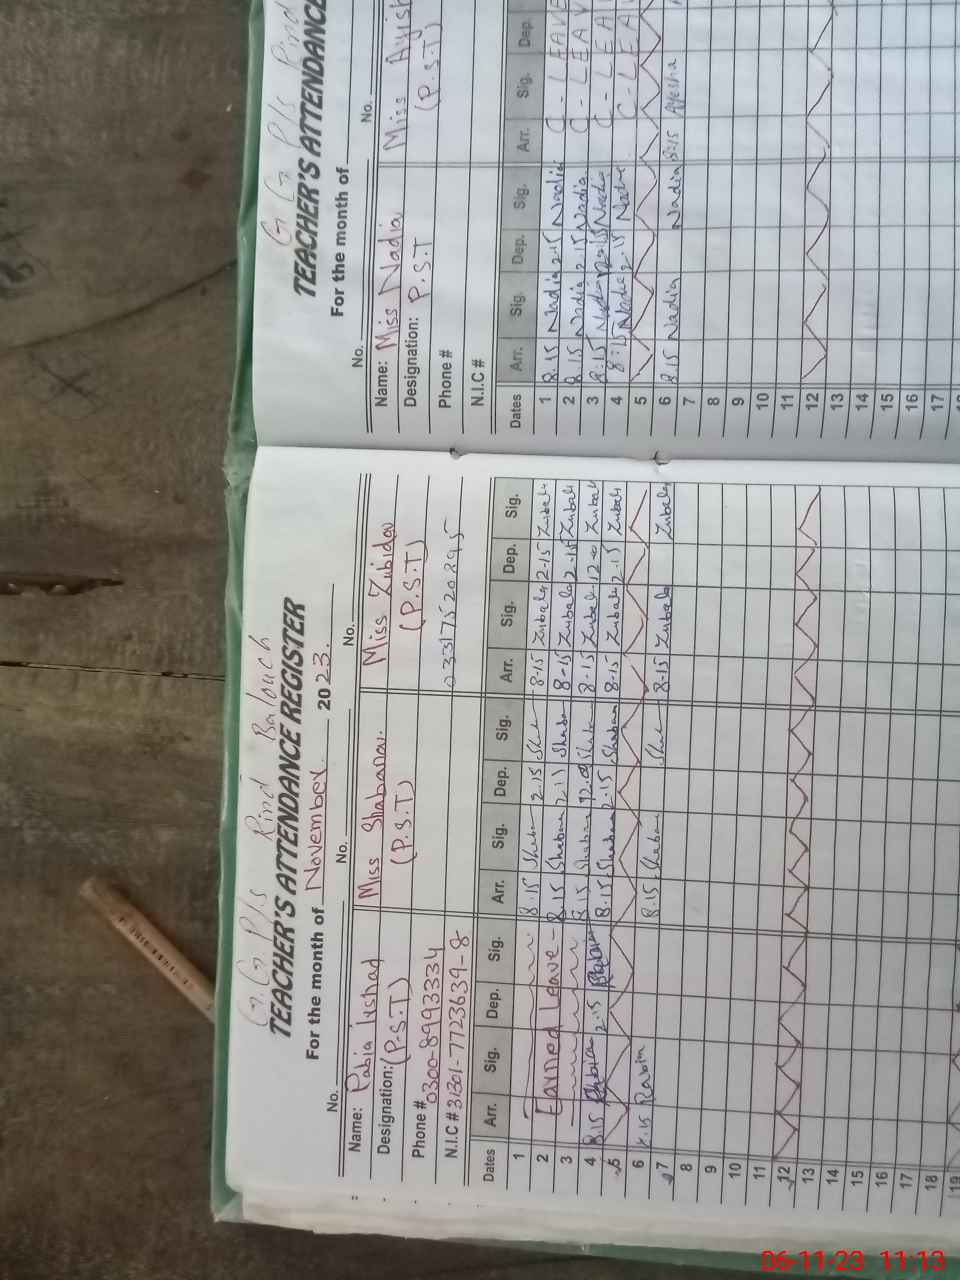 G. G P/s Rind Balouch
TEACHER'S ATTENDANCE REGISTER
For the month of November 2023.
No. No. No.
Name: Rabia Irshad Miss Shabana. Miss Zubida
Designation: (P.S.T) (P.S.T) (P.S.T)
Phone # 0300-8993334
N.I.C # 31301-7723639-8 03317520895
Dates Arr. Sig. Dep. Sig. Arr. Sig. Dep. Sig. Arr. Sig. Dep. Sig.
1 8.15 Shaban 2.15 Sha 8-15 Zubala 2-15 Zubali
2 Earned Leave 8.15 Shabana 2.15 Shaban 8-15 Zubala 2.15 Zubali
3 8.15 Shabana 12.00 Shaban 8-15 Zubali 12.00 Zubali
4 8.15 Rabia 2.15 Rabia 8.15 Shabana 2.15 Shabana 8-15 Zubali 2.15 Zubali
5
6 8.15 Rabia 8.15 Shabana Sha 8-15 Zubali Zubala
7
8
9
10
11
12
13
14
15
16
17
18
19
G G P/s Rind
TEACHER'S ATTENDANCE
For the month of
No. No.
Name: Miss Nadia Miss Ayish
Designation: P.S.T (P.S.T)
Phone #
N.I.C #
Dates Arr. Sig. Dep. Sig. Arr. Sig. Dep.
1 8.15 Nadia 2.15 Nadia C - LEAVE
2 8.15 Nadia 2.15 Nadia C - LEAV
3 8:15 Nadia 2.15 Nadia C - LEA
4 8:15 Nadia 2.15 Nadia C - LEAV
5
6 8.15 Nadia Nadia 8:15 Ayesha
7
8
9
10
11
12
13
14
15
16
17
18
06-11-23 11:13